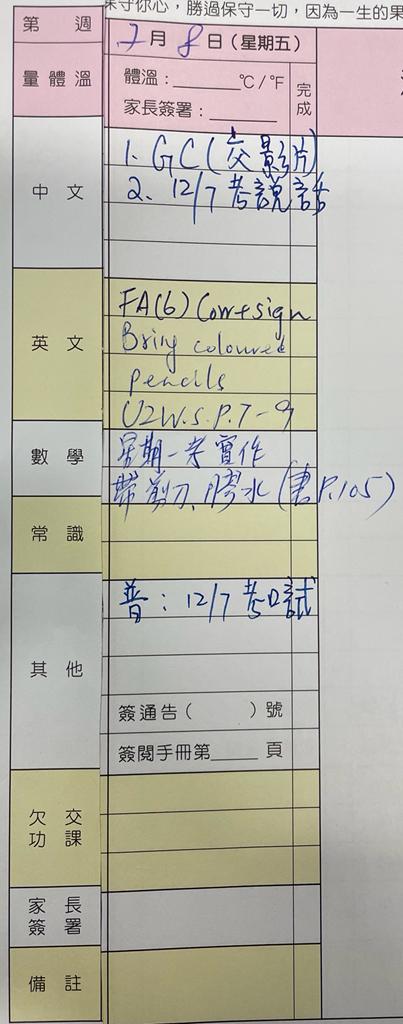 保守你心，勝過保守一切，因為一生的果
第 週
7月8日(星期五)
量體溫
體溫：______℃/℉
家長簽署：______
完成
中文
1. GC(交影片)
2. 12/7 考說話
英文
FA(6) Corr+sign
Bring coloured
pencils
U2W.S.P.7-9
數學
星期一考實作
帶剪刀、膠水(書P.105)
常識
其他
普：12/7 考口試
簽通告( )號
簽閱手冊第____頁
欠交功課
家長簽署
備註